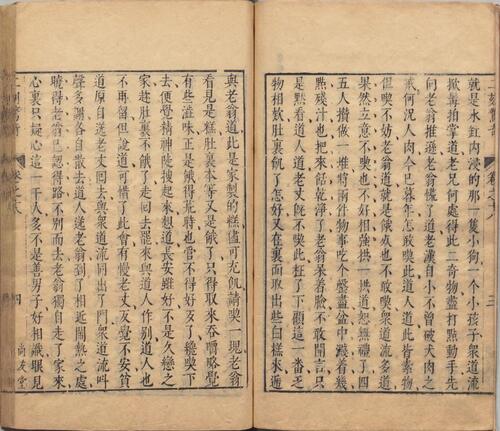 就是水紅肉浸的那一隻小狗一個小孩子衆道流
掀髯拍掌道老兄何處得此二奇物盡打點動手先
向老翁推遜老翁慌了道老漢自小不曾破犬肉之
戒何況人肉今已暮年怎敢喫此道人道此皆素物
但喫不妨老翁道就是餓死也不敢喫衆道流多道
果然立意不喫也不好相強拱一拱道恕無禮了四
五人攢做一堆將兩件物事吃个盤盡盆中濺着幾
點殘汁也把來舐乾淨了老翁呆着臉不敢開言只
是點看道人道老丈既不喫此枉了下顧這一番乏
物相款肚裏飢了怎好又在裏面取出些白糕來遞
與老翁道此是家製的糕儘可充飢請喫一塊老翁
看見是糕肚裏本等又是餓了只得取來吞嚼略覺
有些澁味正是餓得荒時也當不得好歹了纔喫下
去便覺精神陡搜起來想道長安雖好不是久戀之
家趂肚裏不餓了走回去罷來與道人作別道人也
不再留但說道可惜了此會有慢老丈反覺不安貧
道原自送老丈回去與衆道流同出了門衆道流叫
聲多謝各自散去道人送老翁到了相近鬧熱之處
曉得老翁已認得路不別而去老翁獨自走了家來
心裏只疑心這一干人多不是善男子好相識眼見
二刻驚奇
卷之十八
三
四
尚友堂